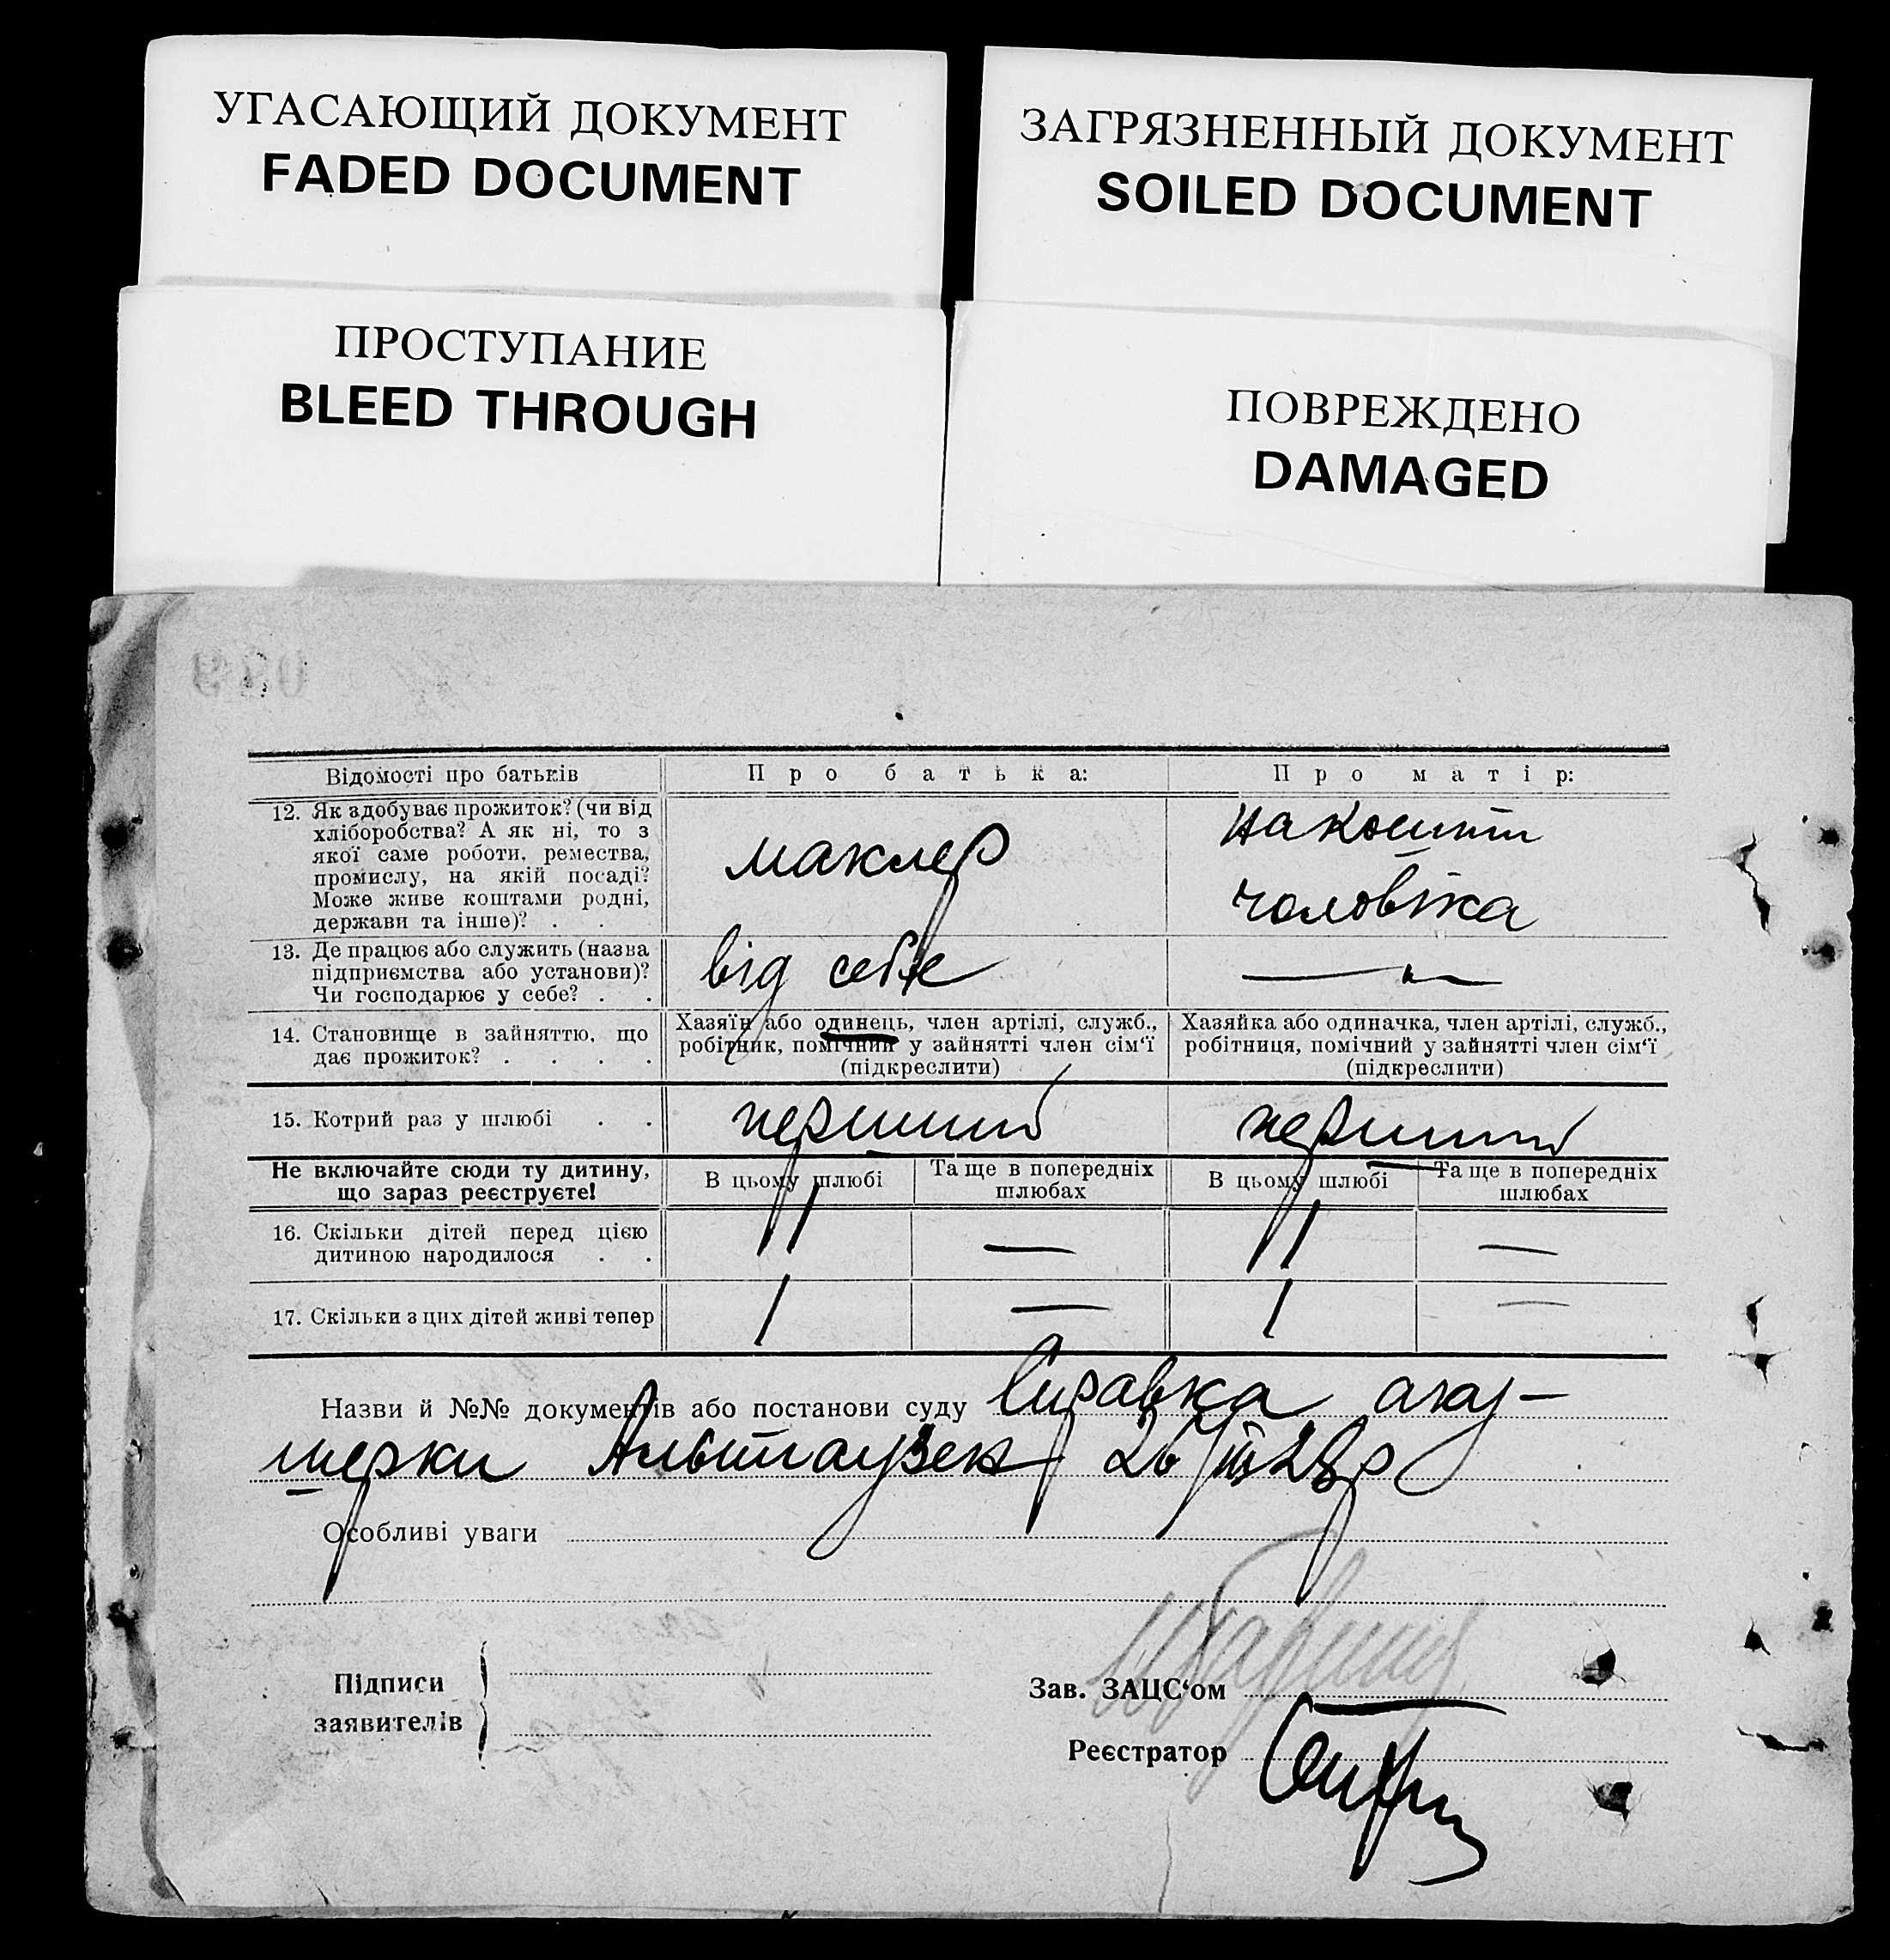 УГАСАЮЩИЙ ДОКУМЕНТ
FADED DOCUMENT
ЗАГРЯЗНЕННЫЙ ДОКУМЕНТ
SOILED DOCUMENT
ПРОСТУПАНИЕ
BLEED THROUGH
ПОВРЕЖДЕНО
DAMAGED
Відомості про батьків
Про батька:
Про матір:
12. Як здобуває прожиток? (чи від
хліборобства? А як ні, то з
якої саме роботи, ремества,
промислу, на якій посаді?
Може живе коштами родні,
держави та інше)? . .
маклер
на кошти
чоловіка
13. Де працює або служить (назва
підприємства або установи)?
Чи господарює у себе? . .
від себе
— " —
14. Становище в зайняттю, що
дає прожиток? . . . .
Хазяїн або одинець, член артілі, служб.,
робітник, помічний у зайнятті член сім‘ї
(підкреслити)
Хазяйка або одиначка, член артілі, служб.,
робітниця, помічний у зайнятті член сім‘ї
(підкреслити)
15. Котрий раз у шлюбі . .
перший
перший
Не включайте сюди ту дитину,
що зараз реєструєте!
В цьому шлюбі
Та ще в попередніх
шлюбах
В цьому шлюбі
Та ще в попередніх
шлюбах
16. Скільки дітей перед цією
дитиною народилося . .
1
—
1
—
17. Скільки з цих дітей живі тепер
1
—
1
—
Назви й №№ документів або постанови суду Справка аку-
шерки Альтгаузен 26/III 28 р
Особливі уваги
Підписи
заявителів
Зав. ЗАЦС‘ом
Реєстратор